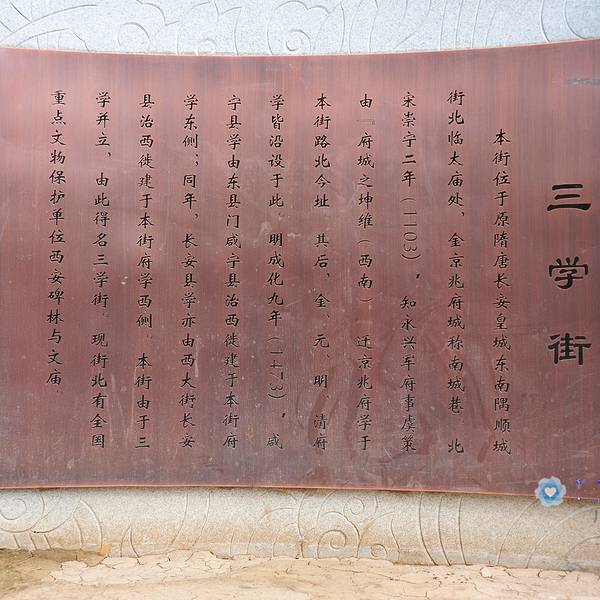 三学街
本街位于原隋唐长安皇城东南隅顺城
街北临太庙处，金京兆府城称南城巷。北
宋崇宁二年（1103），知永兴军府事虞策
由『府城之坤维（西南）迁京兆府学于
本街路北今址。其后，金、元、明、清府
学皆沿设于此。明成化九年（1473），咸
宁县学由东县门咸宁县治西徙建于本街府
学东侧；同年，长安县学亦由西大街长安
县治西徙建于本街府学西侧。本街由于三
学并立，由此得名三学街。现街北有全国
重点文物保护单位西安碑林与文庙。